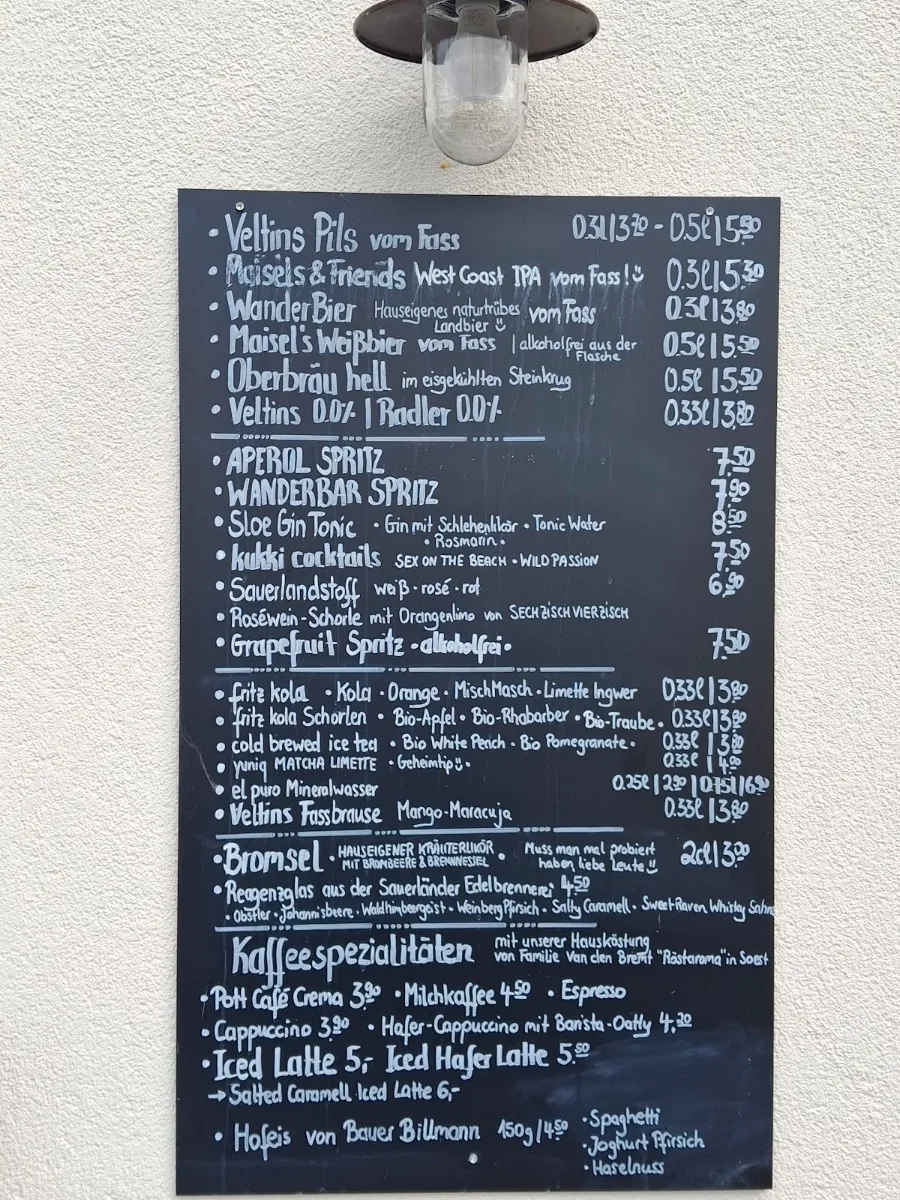 • Veltins Pils vom Fass 0.3l|3.70 - 0.5l|5.50
• Maisel's & Friends West Coast IPA vom Fass! 0.3l|5.30
• WanderBier Hauseigenes naturtrübes Landbier vom Fass 0.3l|3.80
• Maisel's Weißbier vom Fass | alkoholfrei aus der Flasche 0.5l|5.50
• Oberbräu hell im eisgekühlten Steinkrug 0.5l|5.50
• Veltins 0.0% | Radler 0.0% 0.33l|3.80
• APEROL SPRITZ 7.50
• WANDERBAR SPRITZ 7.90
• Sloe Gin Tonic • Gin mit Schlehenlikör • Tonic Water 8.50
• Rosmarin •
• kukki cocktails SEX ON THE BEACH • WILD PASSION 7.50
• Sauerlandstoff weiß • rosé • rot 6.90
• Roséwein-Schorle mit Orangenlimo von SECHZISCH VIERZISCH
• Grapefruit Spritz • alkoholfrei • 7.50
• fritz kola • Kola • Orange • MischMasch • Limette Ingwer 0.33l|3.80
• fritz kola Schorlen • Bio-Apfel • Bio-Rhabarber • Bio-Traube • 0.33l|3.80
• cold brewed ice tea • Bio White Peach • Bio Pomegranate • 0.33l|3.80
• yuniq MATCHA LIMETTE • Geheimtip • 0.33l|4.00
• el puro Mineralwasser 0.25l|2.90|0.75l|6.90
• Veltins Fassbrause Mango-Maracuja 0.33l|3.80
• Bromsel • HAUSEIGENER KRÄUTERLIKÖR MIT BROMBEERE & BRENNNESSEL • Muss man mal probiert haben liebe Leute!! 2cl|3.00
• Reagenzglas aus der Sauerländer Edelbrennerei 4.50
• Obstler • Johannisbeere • Waldhimbeergeist • Weinberg Pfirsich • Salty Caramell • Sweet Raven Whisky Sahne
Kaffeespezialitäten mit unserer Hausröstung
von Familie Van den Bremt "Röstaroma" in Soest
• Pott Café Crema 3.90 • Milchkaffee 4.50 • Espresso
• Cappuccino 3.90 • Hafer-Cappuccino mit Barista-Oatly 4.20
• Iced Latte 5,- Iced Hafer Latte 5.50
→ Salted Caramell Iced Latte 6,-
• Hofeis von Bauer Billmann 150g/4.50
• Spaghetti
• Joghurt Pfirsich
• Haselnuss